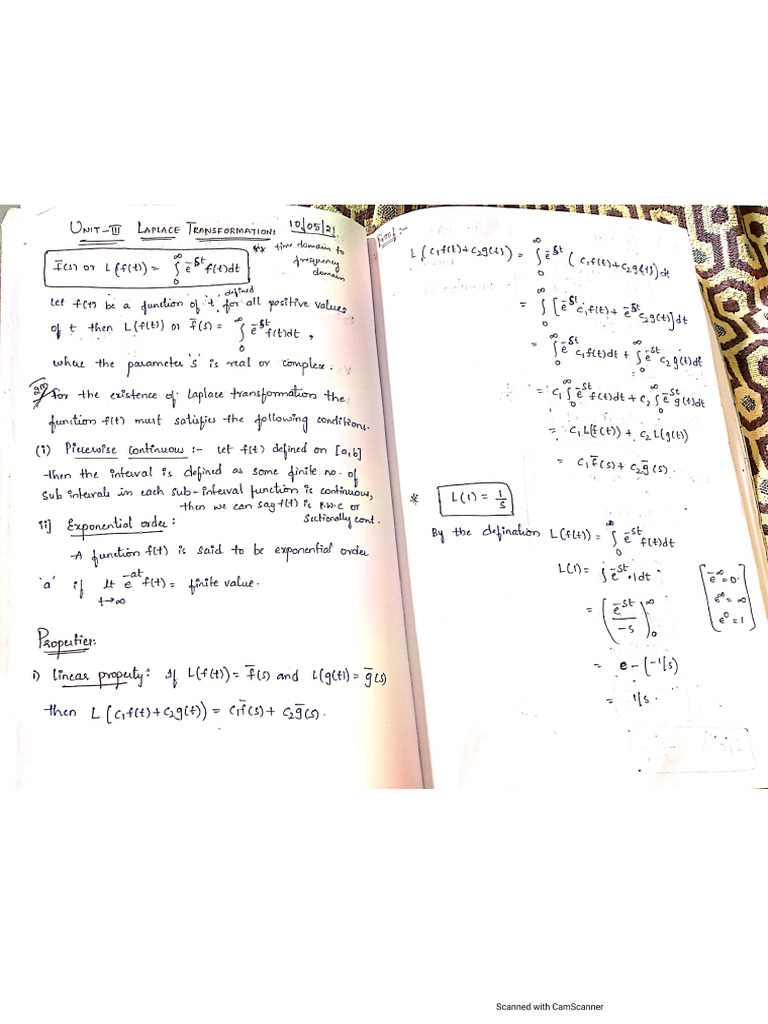 UNIT-III LAPLACE TRANSFORMATIONS 10/05/21
f̄(s) or L(f(t)) = ∫₀^∞ e^-st f(t)dt
** time domain to
frequency
domain
Let f(t) be a function of 't' defined for all positive values
of t then L(f(t)) or f̄(s) = ∫₀^∞ e^-st f(t)dt,
where the parameter 's' is real or complex.
2M For the existence of Laplace transformation the
function f(t) must satisfies the following conditions.
(i) Piecewise continuous :- Let f(t) defined on [a,b]
then the interval is defined as some finite no. of
sub intervals in each sub-interval function is continuous,
then we can say f(t) is P.W.C or
Sectionally cont.
ii] Exponential order:
A function f(t) is said to be exponential order
'a' if lt t→∞ e^-at f(t) = finite value.
Properties:
i) Linear property: If L(f(t)) = f̄(s) and L(g(t)) = ḡ(s)
then L(c₁f(t)+c₂g(t)) = c₁f̄(s) + c₂ḡ(s).
Proof :-
L(c₁f(t)+c₂g(t)) = ∫₀^∞ e^-st (c₁f(t)+c₂g(t))dt
= ∫₀^∞ [e^-st c₁f(t) + e^-st c₂g(t)]dt
= ∫₀^∞ e^-st c₁f(t)dt + ∫₀^∞ e^-st c₂g(t)dt
= c₁∫₀^∞ e^-st f(t)dt + c₂∫₀^∞ e^-st g(t)dt
= c₁L(f(t)) + c₂L(g(t))
= c₁f̄(s) + c₂ḡ(s).
* L(1) = 1/s
By the defination L(f(t)) = ∫₀^∞ e^-st f(t)dt
L(1) = ∫ e^-st · 1dt
= (e^-st / -s)₀^∞
= e - (-1/s)
= 1/s.
[e^-∞ = 0
e^∞ = ∞
e^0 = 1]
Scanned with CamScanner